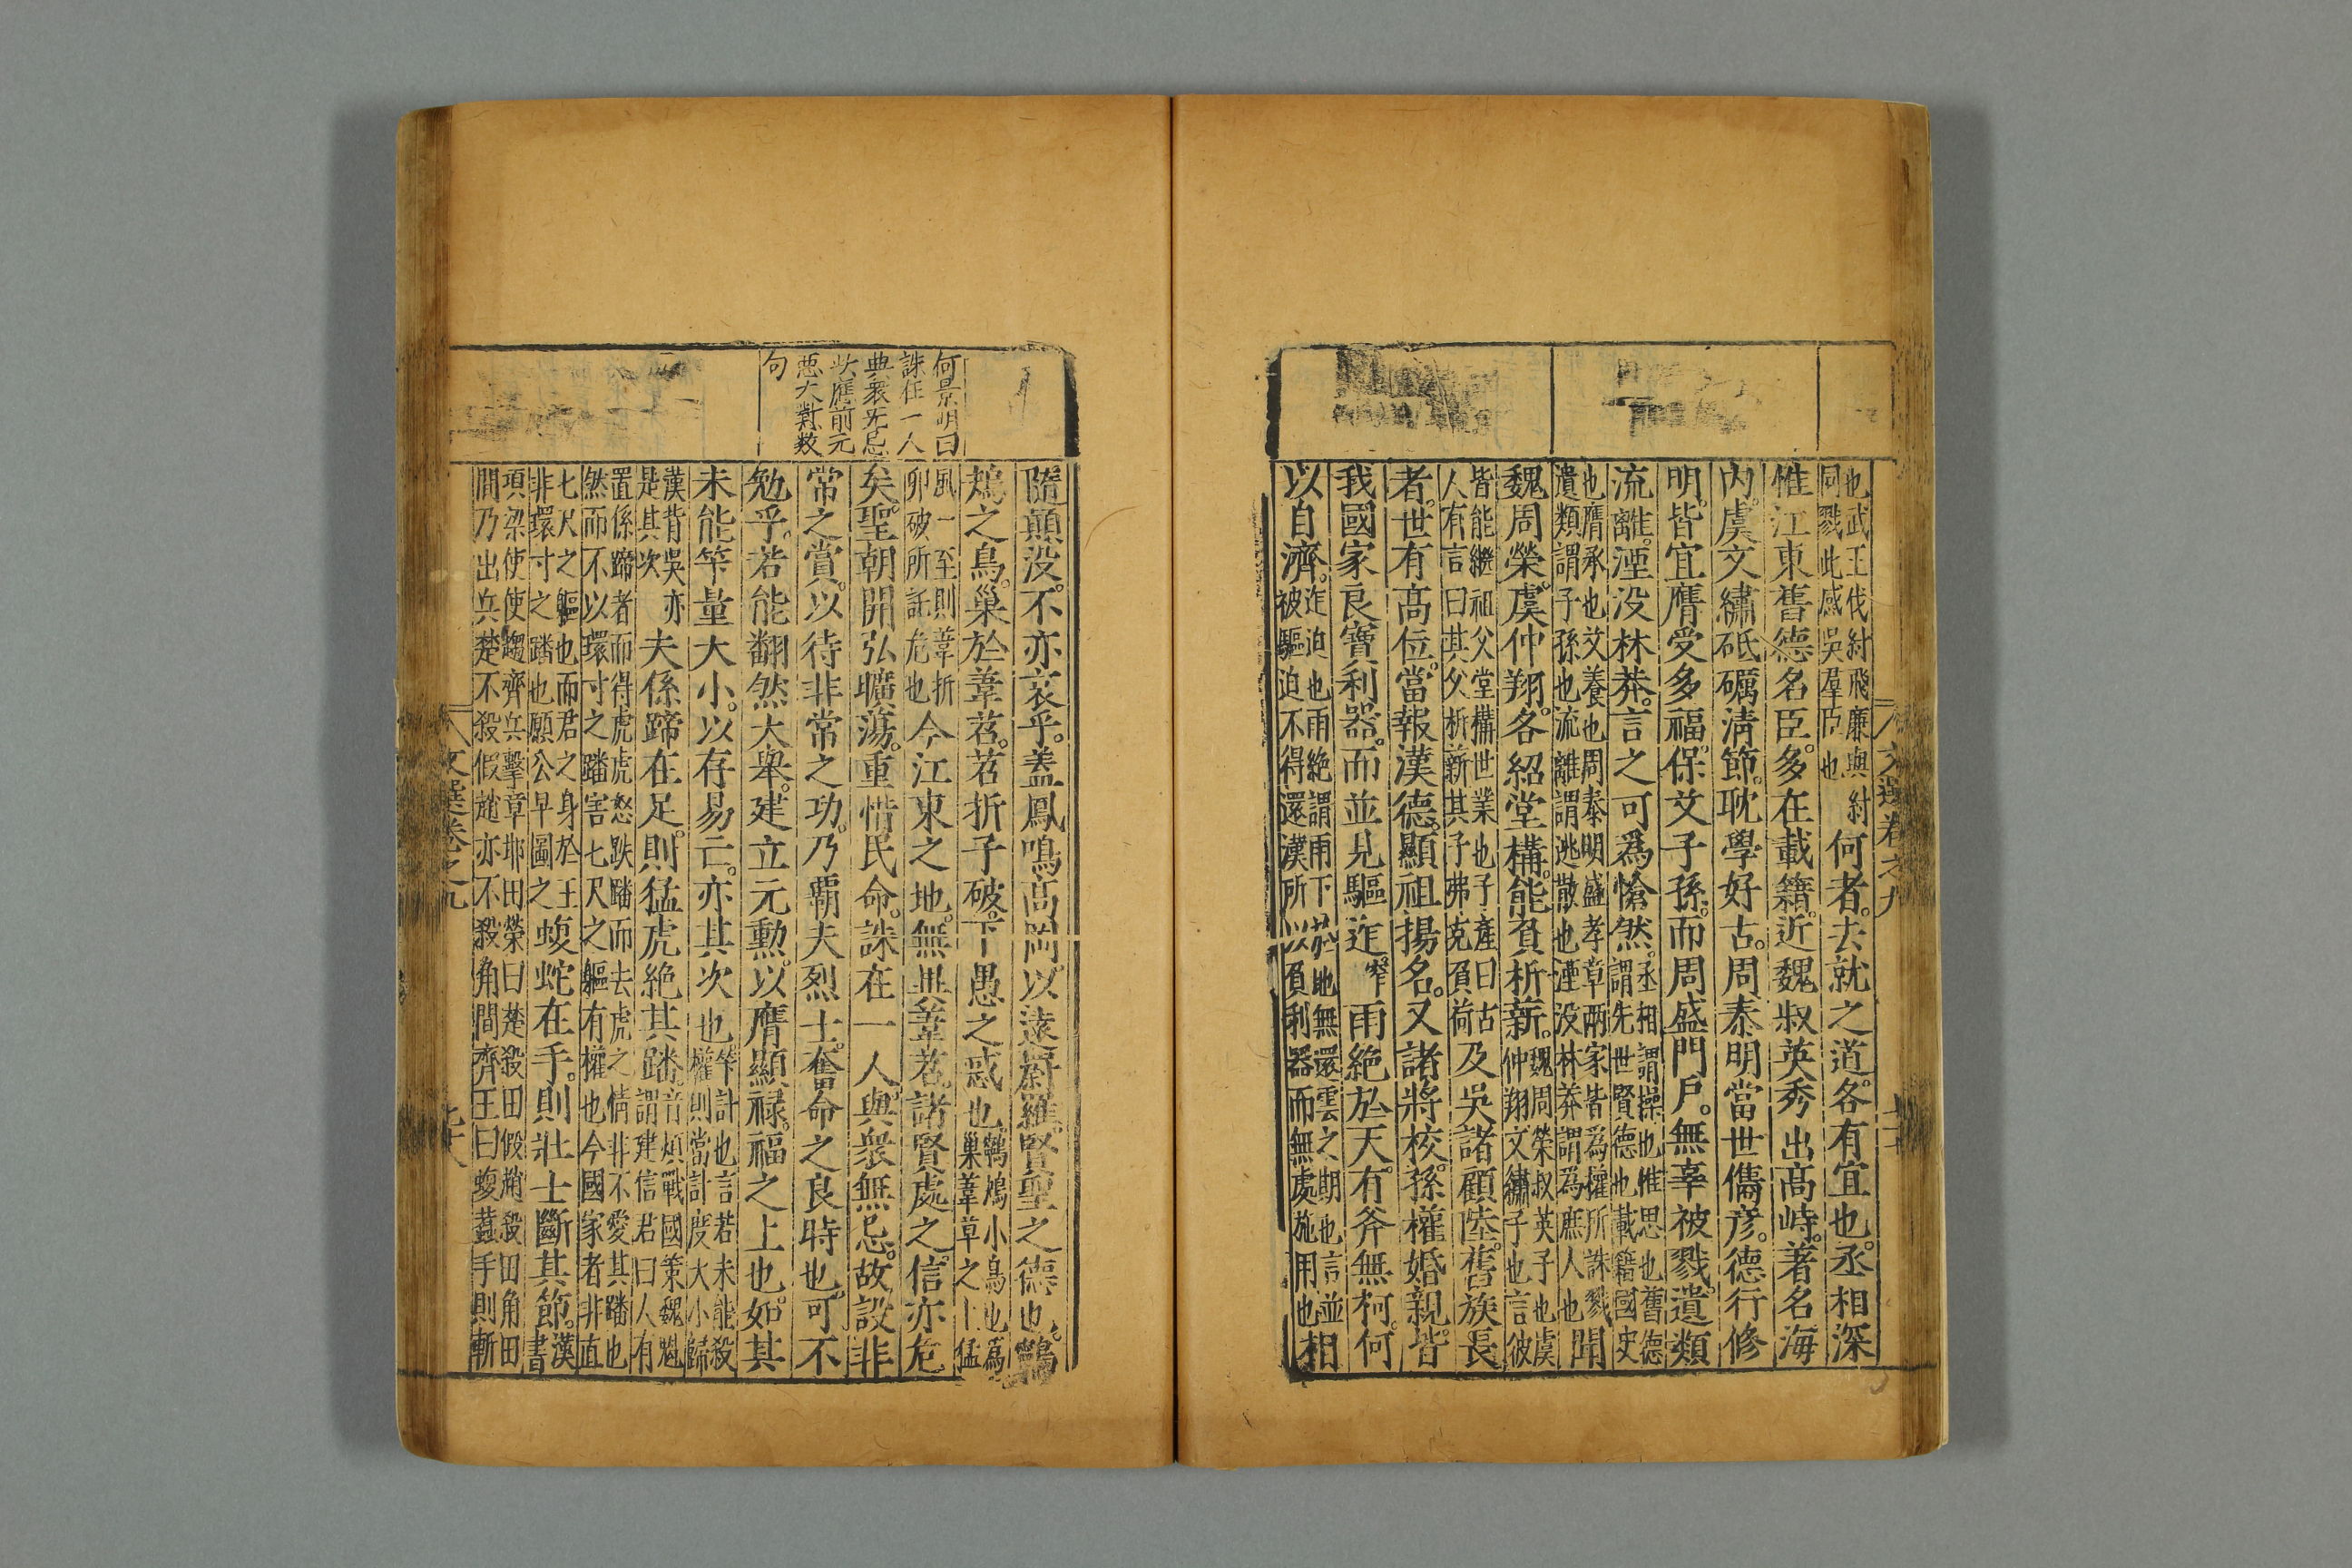 文選卷之九
也武王伐紂飛廉與紂
同戮此感吳羣臣也
何者去就之道各有宜也丞相深
惟江東舊德名臣多在載籍近魏叔英秀出高峙著名海
內虞文繡砥礪清節耽學好古周泰明當世儁彦德行修
明皆宜膺受多福保乂子孫而周盛門戶無辜被戮遺類
流離湮没林莽言之可爲愴然
丞相謂操也惟思也舊德
謂先世賢德也載籍國史
也膺承也乂養也周泰明盛孝章兩家皆為權所誅戮
遺類謂子孫也流離謂逃散也湮没林莽謂為庶人也
聞
魏周榮虞仲翔各紹堂構能負析薪
魏周榮叔英子也虞
仲翔文繡子也言彼
皆能繼祖父堂構世業也子產曰古
人有言曰其父析薪其子弗克負荷
及吳諸顧陸舊族長
者世有高位當報漢德顯祖揚名又諸將校孫權婚親皆
我國家良寶利器而並見驅迮
窄
雨絶於天有斧無柯何
以自濟
迮迫也雨絶謂雨下於地無還雲之期也言並
被驅迫不得還漢所以負利器而無處施用也
相
隨顛没不亦哀乎蓋鳳鳴高岡以遠罻羅賢聖之德也鸋
鴂之鳥巢於葦苕苕折子破下愚之惑也
鸋鴂小鳥也為
巢葦草之上猛
風一至則葦折
卵破所託危也
今江東之地無異葦苕諸賢處之信亦危
矣聖朝開弘曠蕩重惜民命誅在一人與衆無忌故設非
常之賞以待非常之功乃霸夫烈士奮命之良時也可不
勉乎若能翻然大舉建立元勳以膺顯禄福之上也如其
未能筭量大小以存易亡亦其次也
筭計也言若未能殺
權則當計度大小歸
漢背吳亦
是其次
夫係蹄在足則猛虎絶其蹯
音煩戰國策魏魁
謂建信君曰人有
置係蹄者而得虎虎怒跌蹯而去虎之情非不愛其蹯也
然而不以環寸之蹯害七尺之軀有權也今國家者非直
七尺之軀也而君之身於王
非環寸之蹯也願公早圖之
蝮蛇在手則壯士斷其節
漢
書
項梁使使趨齊兵擊章邯田榮曰楚殺田假趙殺田角田
間乃出兵楚不殺假趙亦不殺角間齊王曰蝮蠚手則斬
何景明曰
誅在一人
與衆无忌
此應前元
惡大懟數
句
文選卷之九